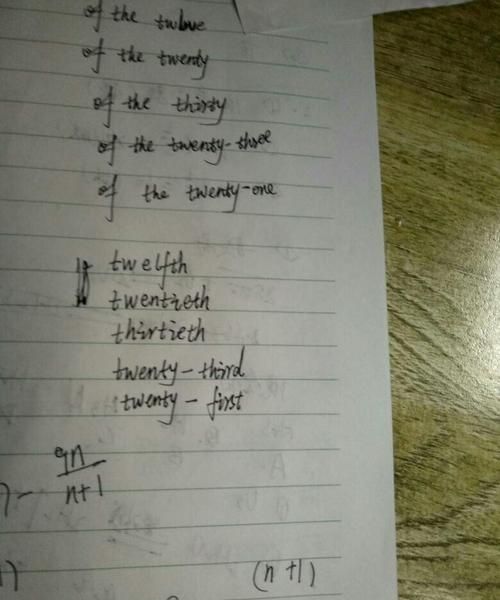 of the twelve
of the twenty
of the thirty
of the twenty-three
of the twenty-one
twelfth
twentieth
thirtieth
twenty-third
twenty-first
9n
n+1
(n+1)